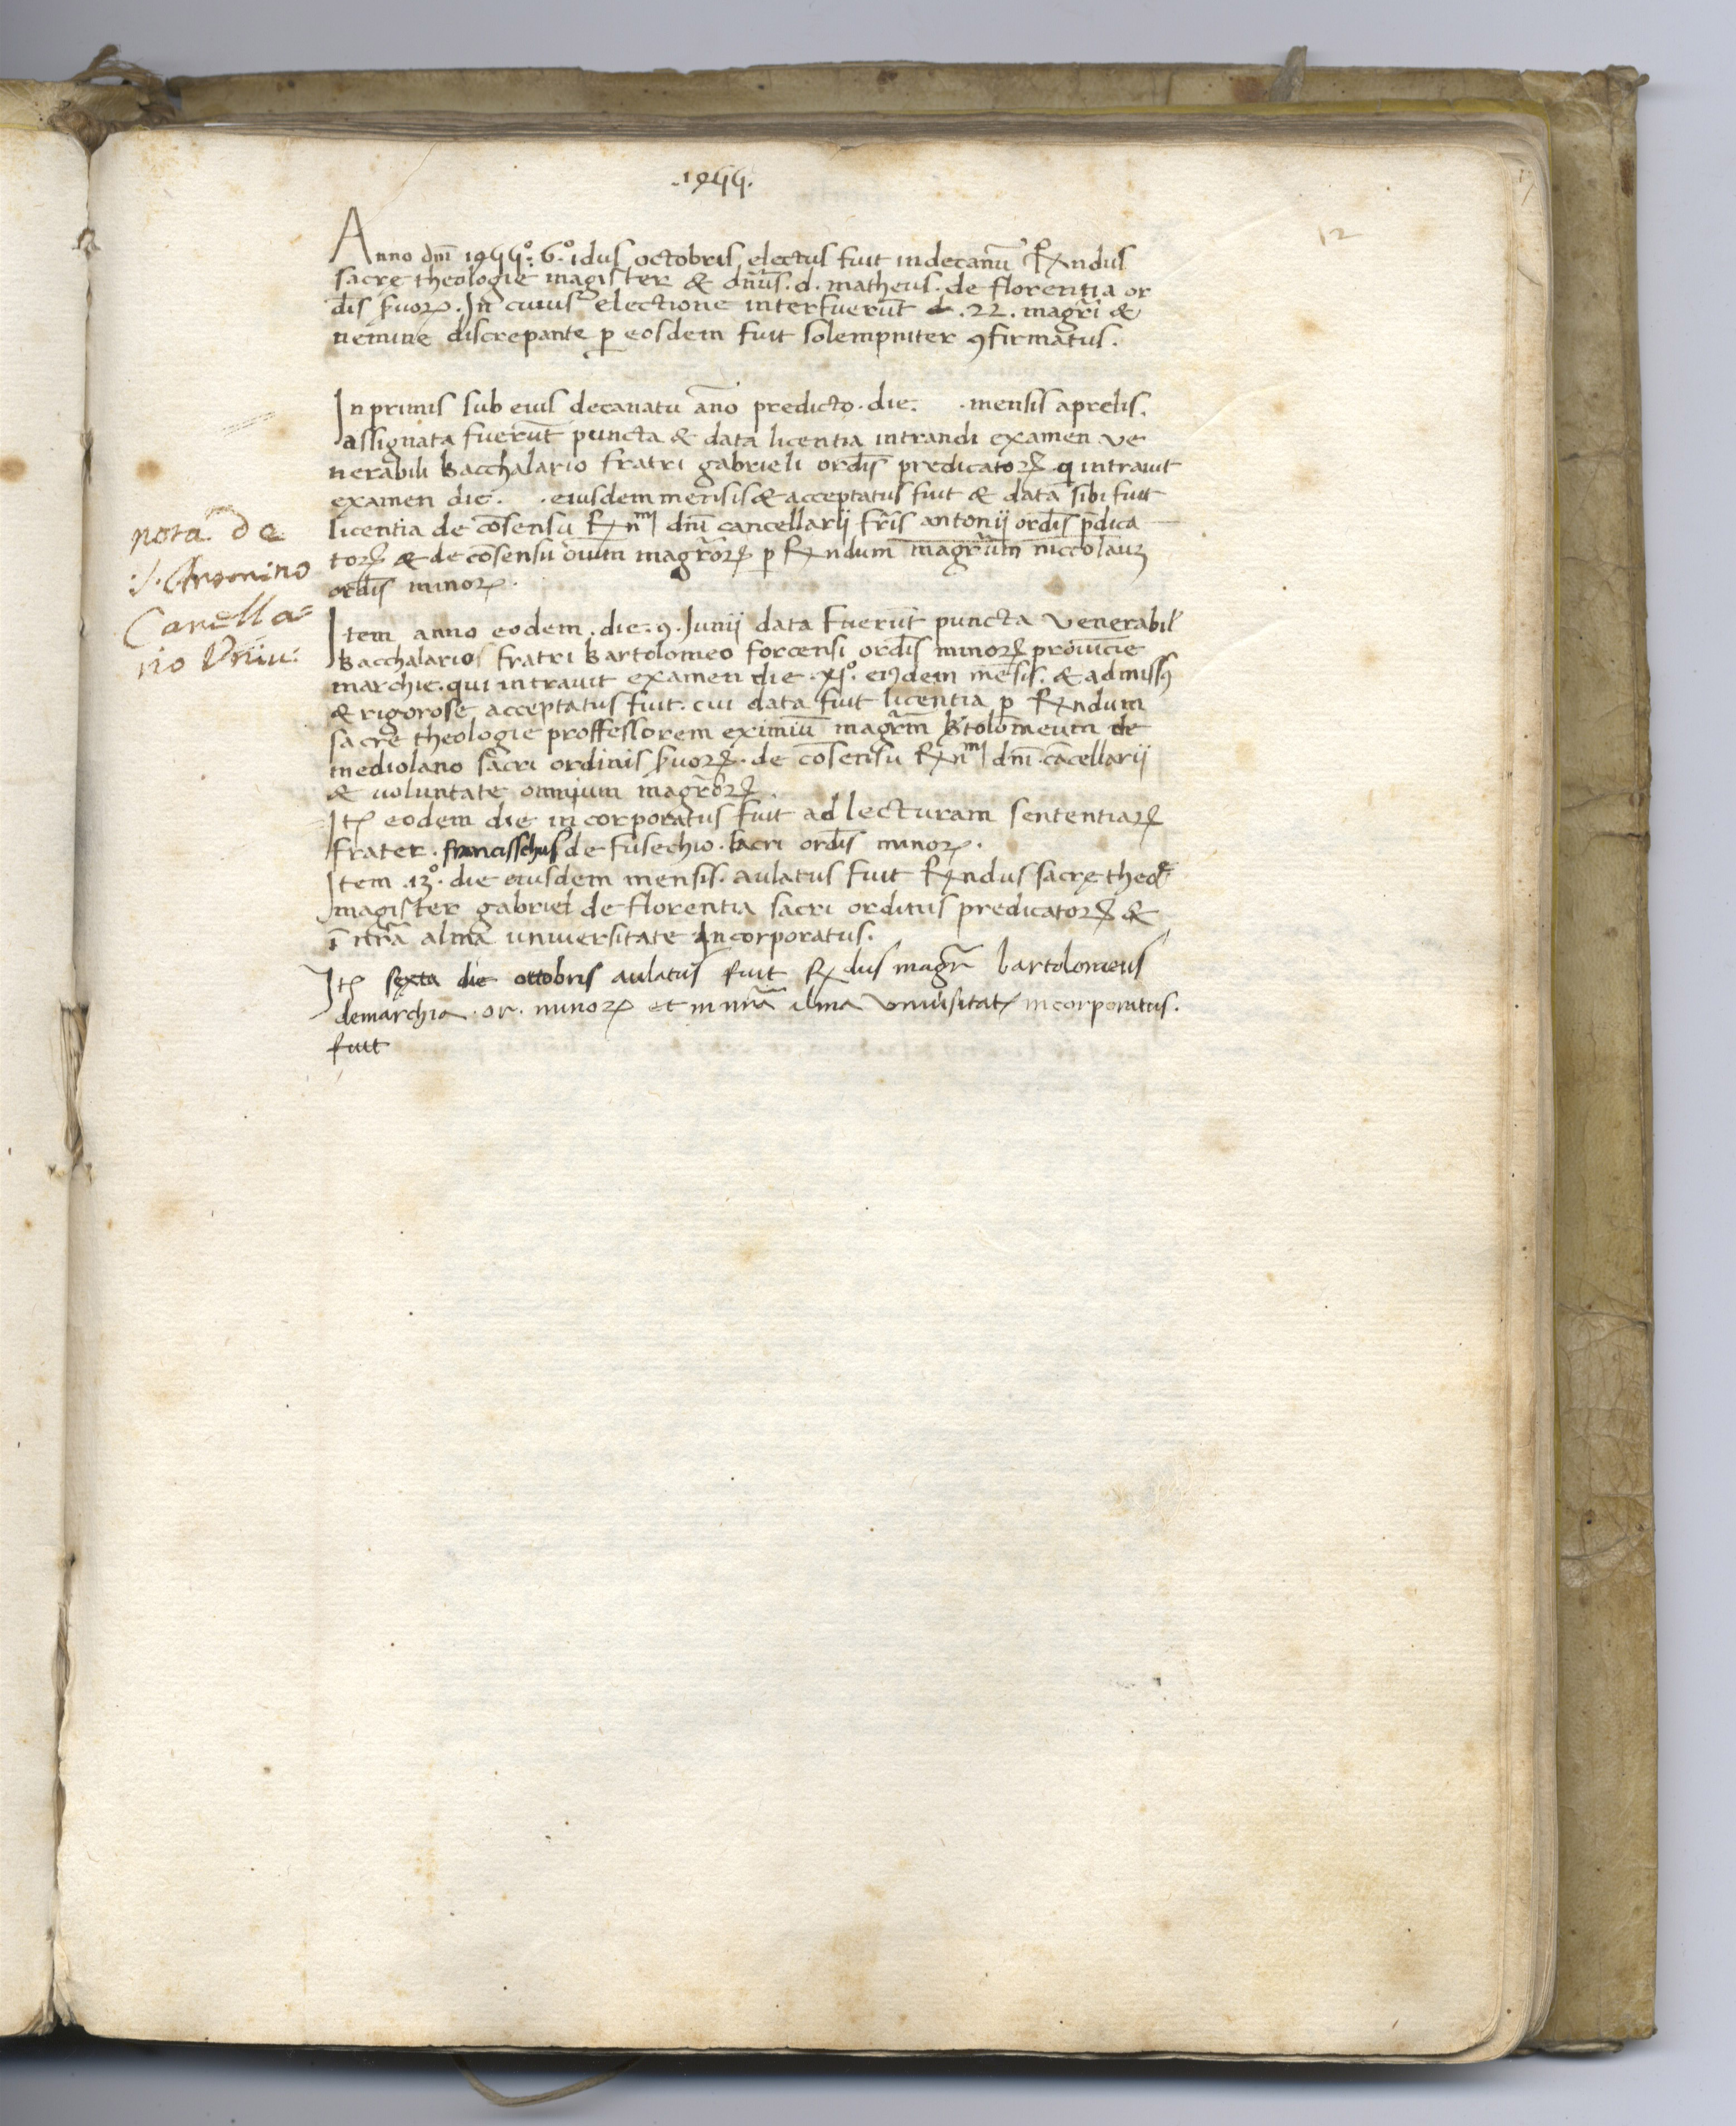 .1455.
12
Anno dnī 1455°. 6°. idus octobris electus fuit in decanū Rndus
sacre theologie magister & dnūs. d. matheus. de florentia or
dīs ẜuoꝝ. In cuius electione interfuerūt .22. magrī &
nemine discrepante ꝑ eosdem fuit solempniter ꝯfirmatus.
Inprimis sub eius decanatu āno predicto. die. . mensis aprelis.
assignata fuerūt puncta & data licentia intrandi examen ve
nerabili bacchalario fratri gabrieli ordīs predicatoꝝ q intrauit
examen die. . eiusdem mensis & acceptatus fuit & data sibi fuit
licentia de cōsensu Rnmi dnī cancellarij frīs antonij ordīs p̄dica
toꝝ & de cōsensu oīum magrōꝝ ꝑ Rndum magrūm niccolauꝫ
ordīs minoꝝ.
nota de
S. Antonino
Cancella=
rio Vniu:
Item anno eodem. die. 9. Junij data fuerūt puncta venerabil
bacchalario fratri bartolomeo forcensi ordīs minoꝝ prouīcie
marchie. qui intrauit examen die. xj°. eiꝰdem mēsis. & admissꝰ
& rigorose acceptatus fuit. cui data fuit licentia ꝑ Rndum
sacre theologie proffessorem eximiū magrm̄ btolomeum de
mediolano sacri ordinis ẜuoꝝ. de cōsensu Rnmi dnī. cācellarij
& uoluntate omnium magrōꝝ.
Itꝫ eodem die incorporatus fuit ad lecturam sententiaꝝ
frater. francisschus de fusechio. sacri ordīs minoꝝ.
Item .13°. die eiusdem mensis. aulatus fuit Rndus sacre theoe
magister gabriel de florentia sacri ordinis predicatoꝝ &
ī nrā alma uniuersitate incorporatus.
Itꝫ sexta die ottobris aulatus fuit Rdus magr bartolomeus
demarchia. or. minoꝝ et in nrā alma vniuersitate incorporatus.
fuit